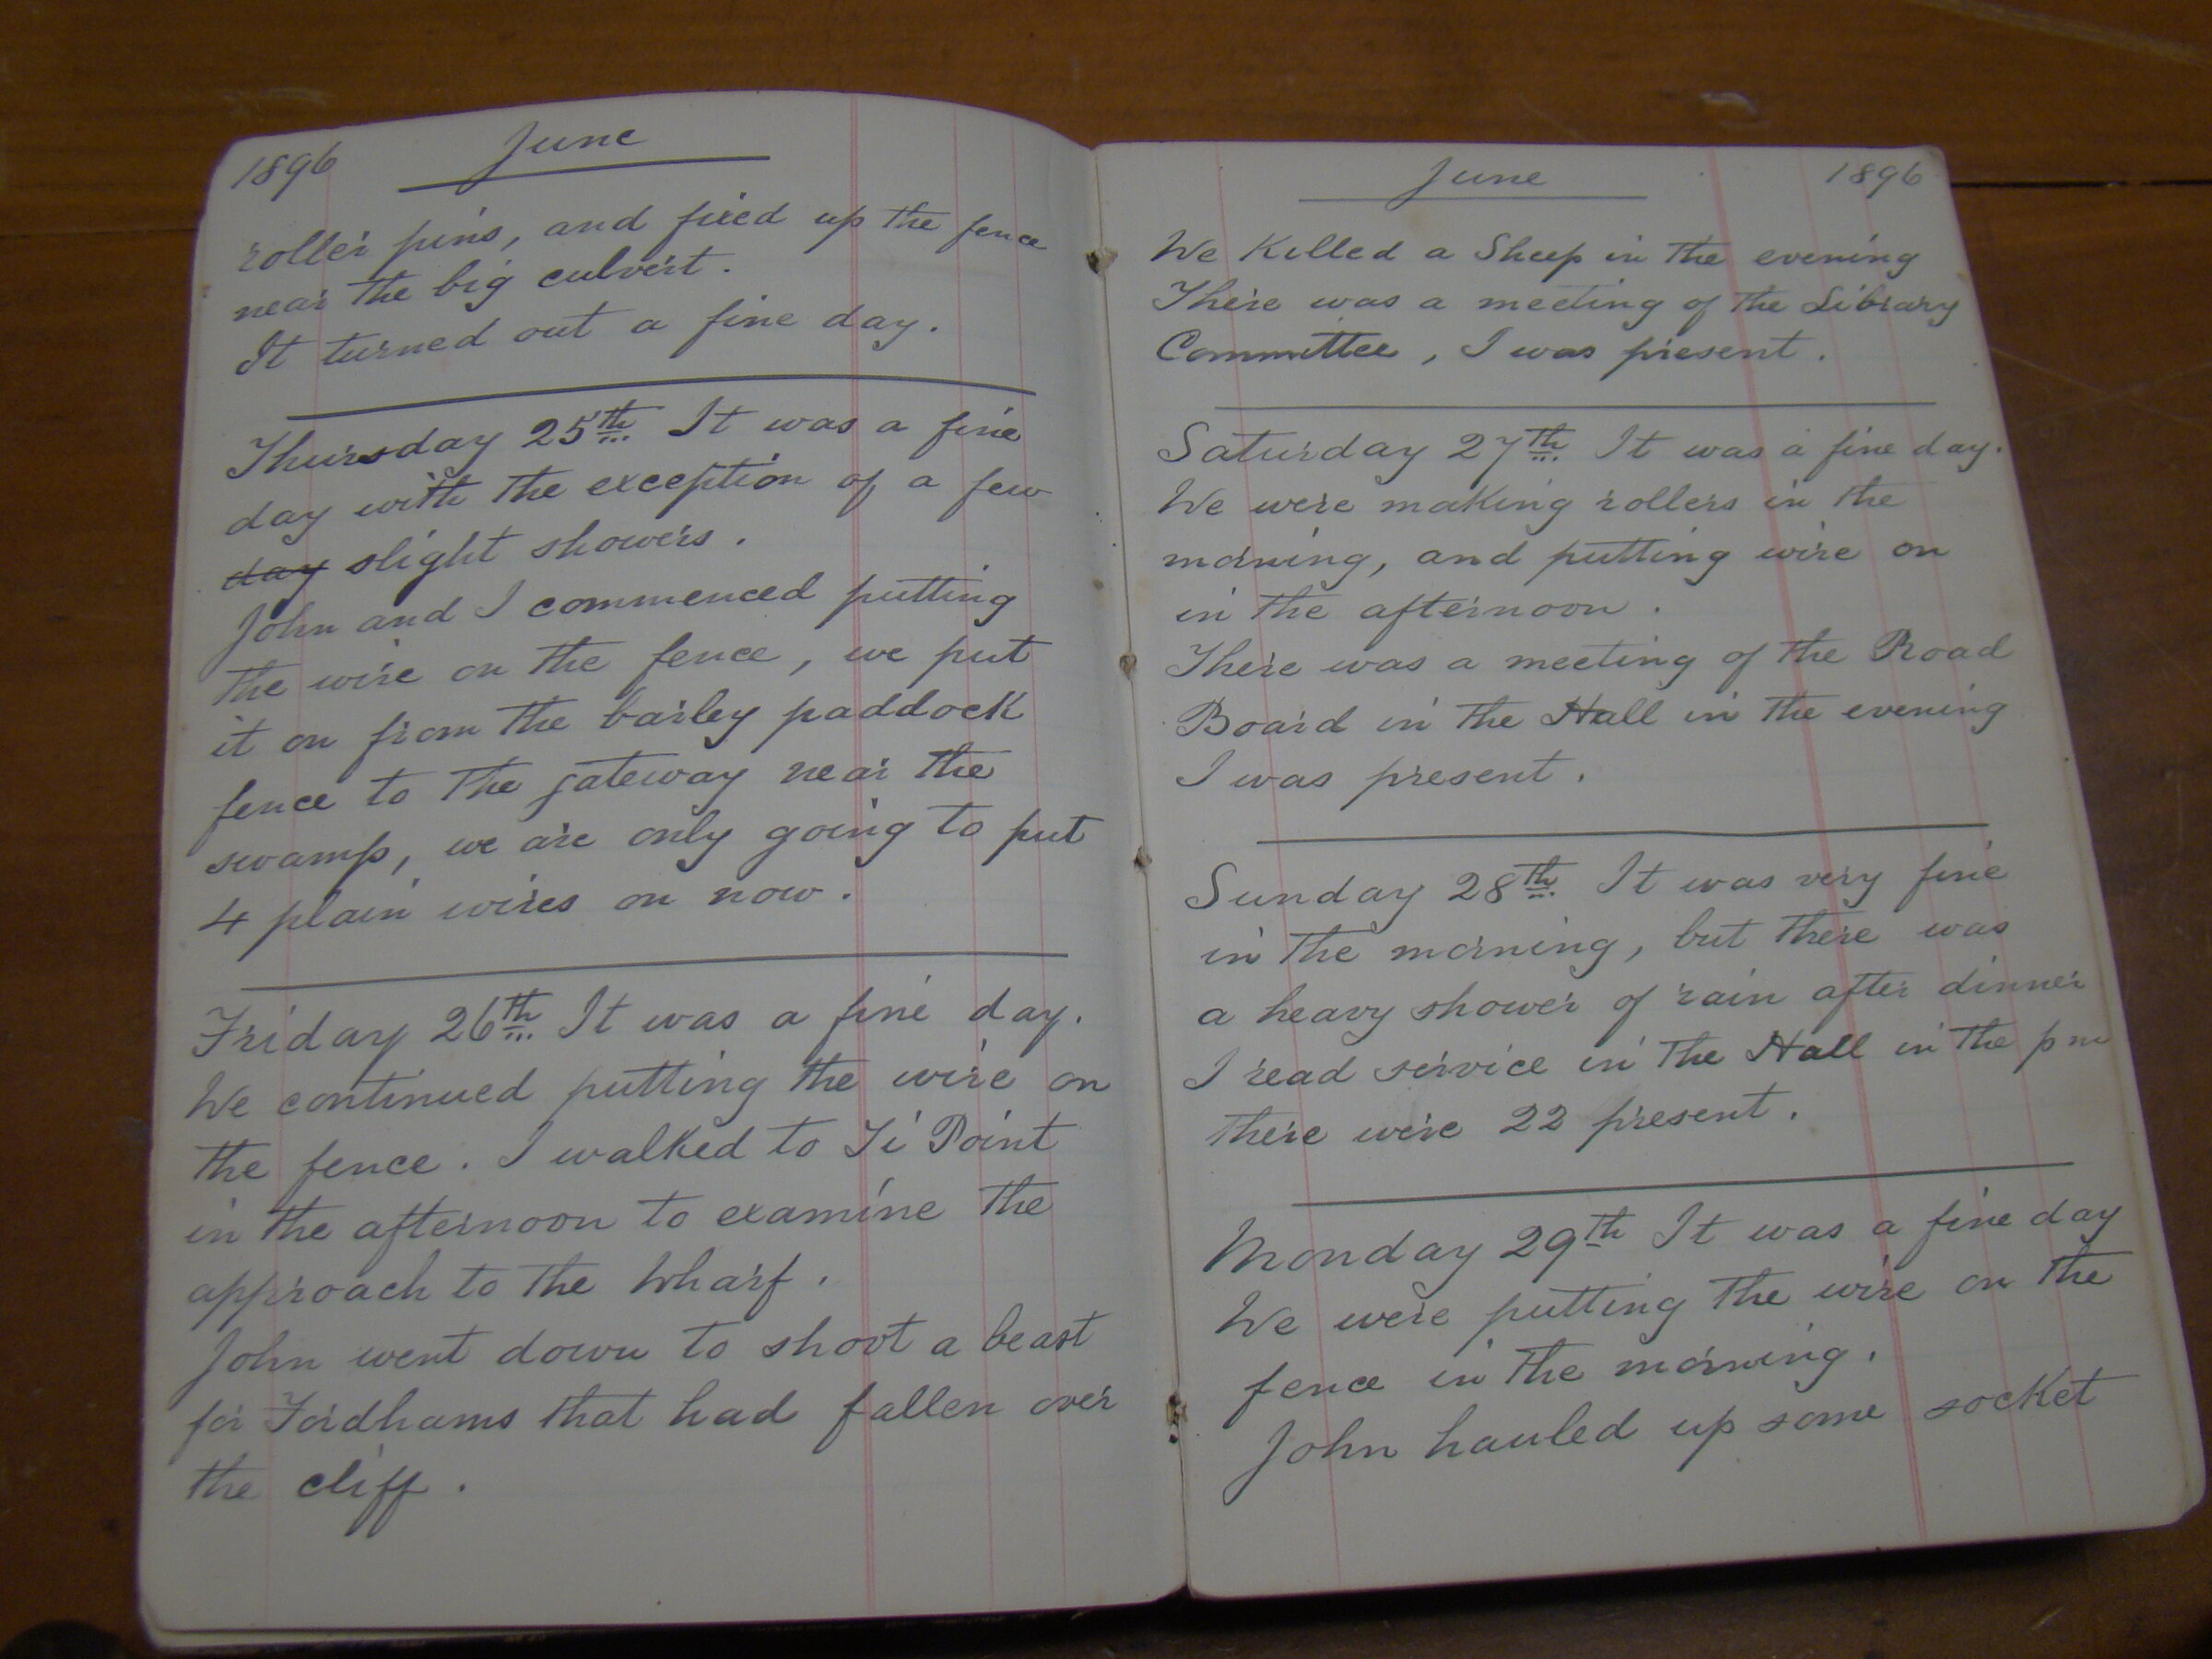 1896 June
roller pins, and fixed up the fence
near the big culvert.
It turned out a fine day.
Thursday 25th It was a fine
day with the exception of a few
day slight showers.
John and I commenced putting
the wire on the fence, we put
it on from the barley paddock
fence to the gateway near the
swamp, we are only going to put
4 plain wires on now.
Friday 26th It was a fine day.
We continued putting the wire on
the fence. I walked to Ti Point
in the afternoon to examine the
approach to the Wharf.
John went down to shoot a beast
for Fordhams that had fallen over
the cliff.
June 1896
We Killed a Sheep in the evening
There was a meeting of the Library
Committee, I was present.
Saturday 27th It was a fine day.
We were making rollers in the
morning, and putting wire on
in the afternoon.
There was a meeting of the Road
Board in the Hall in the evening
I was present.
Sunday 28th It was very fine
in the morning, but there was
a heavy shower of rain after dinner
I read service in the Hall in the pm
there were 22 present.
Monday 29th It was a fine day
We were putting the wire on the
fence in the morning.
John hauled up some socket